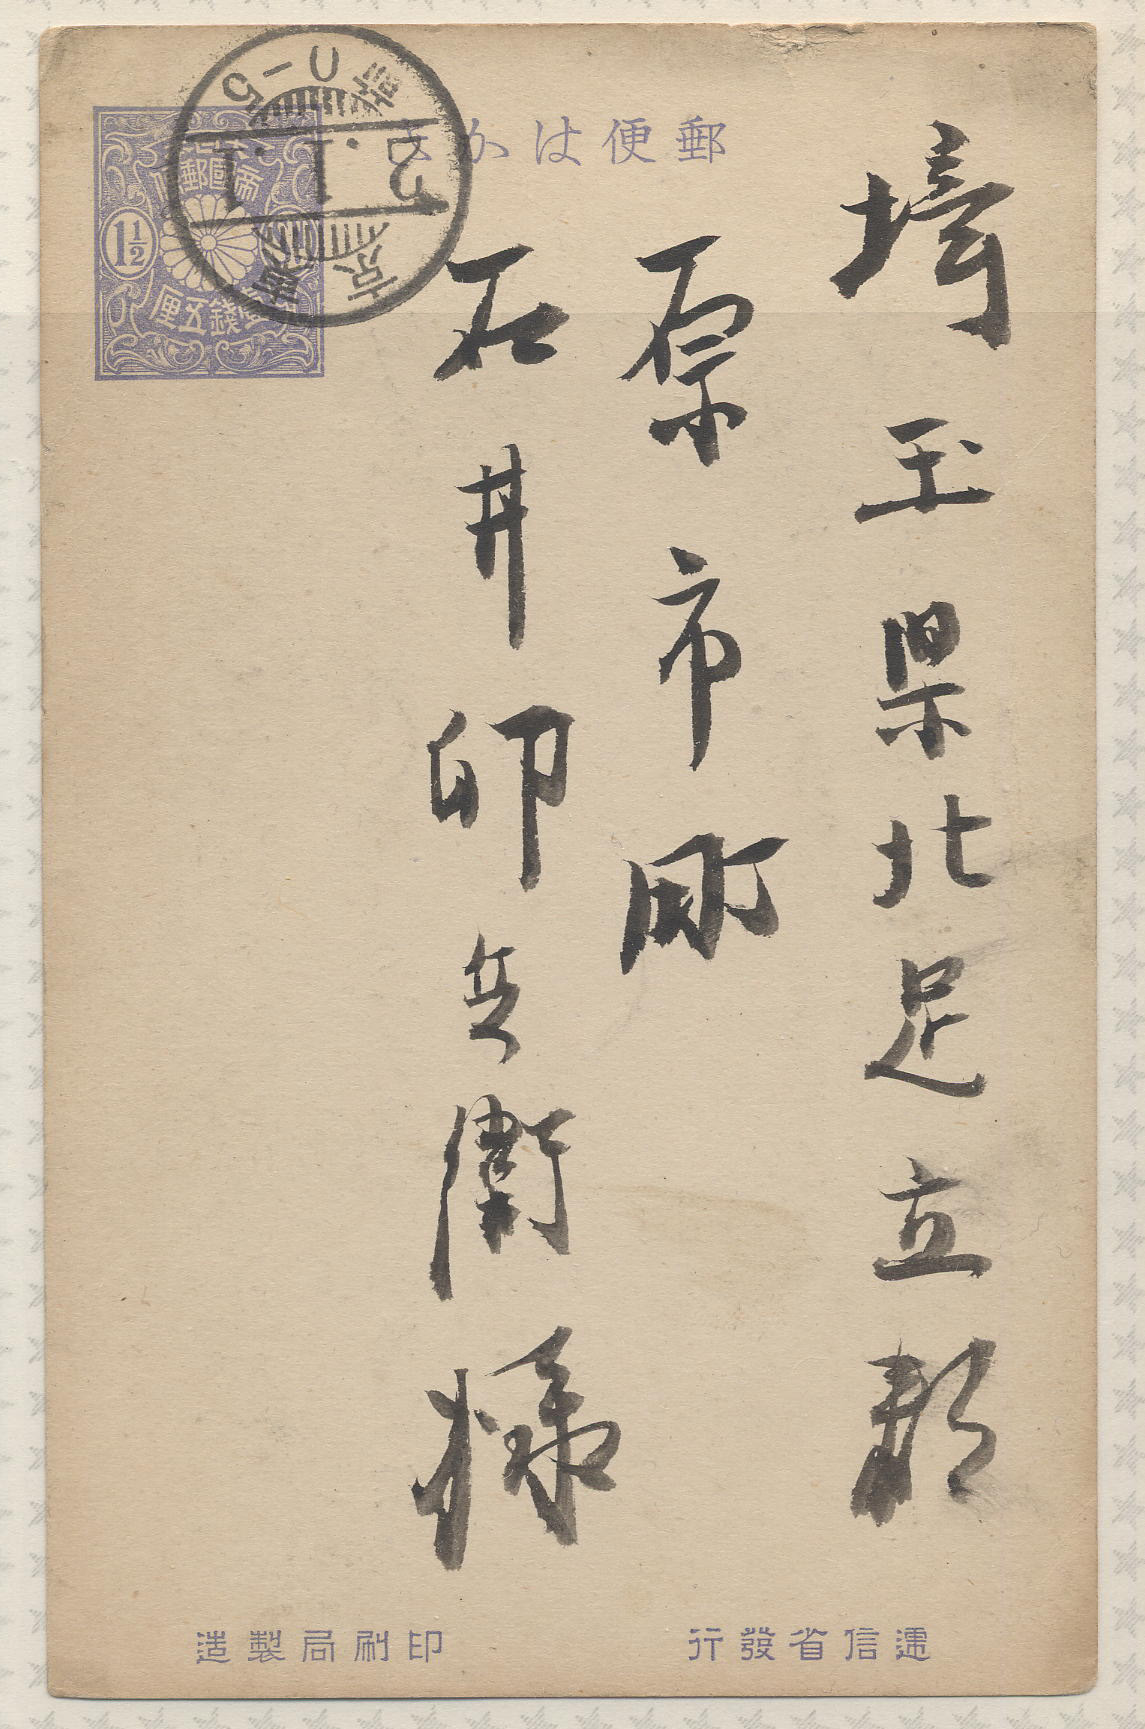 郵便はかき
帝國郵便
1½
壹錢五厘
東京
2.1.1
0-5
埼玉県北足立郡
原市町
石井卯兵衛様
遞信省發行
印刷局製造